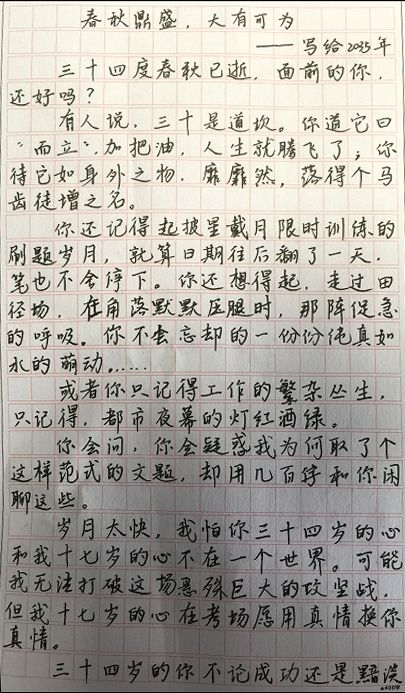 春秋鼎盛，大有可为
——写给2035年
三十四度春秋已逝，面前的你，
还好吗？
有人说，三十是道坎。你道它曰
“而立”，加把油，人生就腾飞了；你
待它如身外之物，靡靡然，落得个马
齿徒增之名。
你还记得起披星戴月限时训练的
刷题岁月，就算日期往后翻了一天，
笔也不会停下。你还想得起，走过田
径场，在角落默默压腿时，那阵促急
的呼吸。你不会忘却的一份份纯真如
水的萌动……
或者你只记得工作的繁杂丛生，
只记得，都市夜幕的灯红酒绿。
你会问，你会疑惑我为何取了个
这样范式的文题，却用几百字和你闲
聊这些。
岁月太快，我怕你三十四岁的心
和我十七岁的心不在一个世界。可能
我无法打破这场悬殊巨大的攻坚战，
但我十七岁的心在考场愿用真情换你
真情。
三十四岁的你不论成功还是黯淡
▲400字